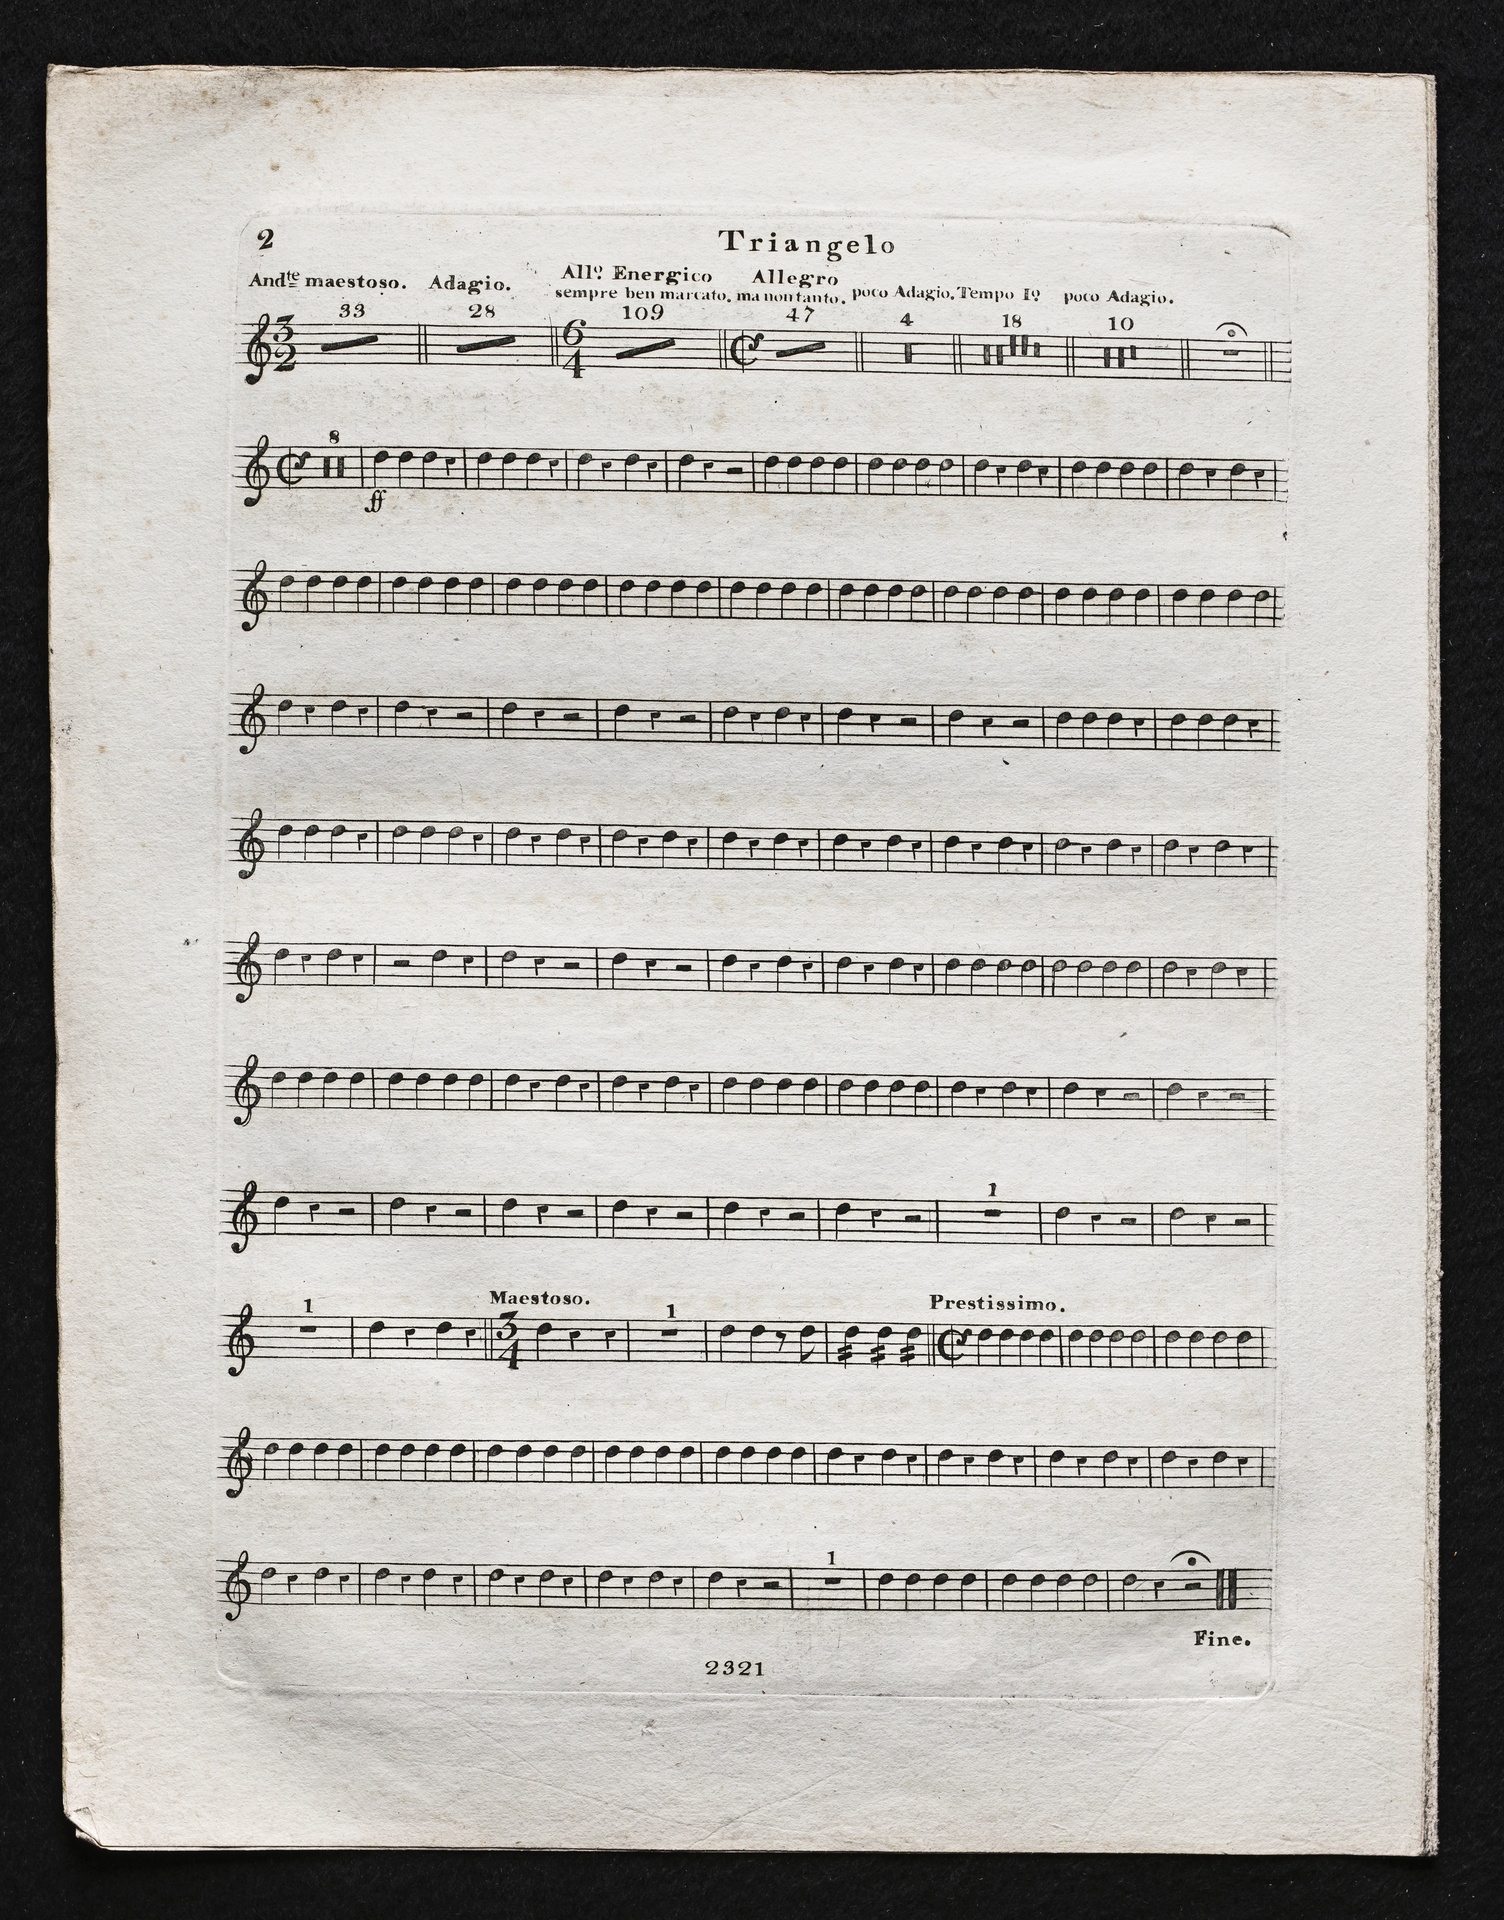 2
Triangelo
Andte maestoso. Adagio. Allo. Energico Allegro
sempre ben marcato. ma non tanto. poco Adagio. Tempo Io poco Adagio.
33 28 109 47 4 18 10
3 2 6 4
8
ff
1
1 Maestoso. 1 Prestissimo.
3 4
1
Fine.
2321